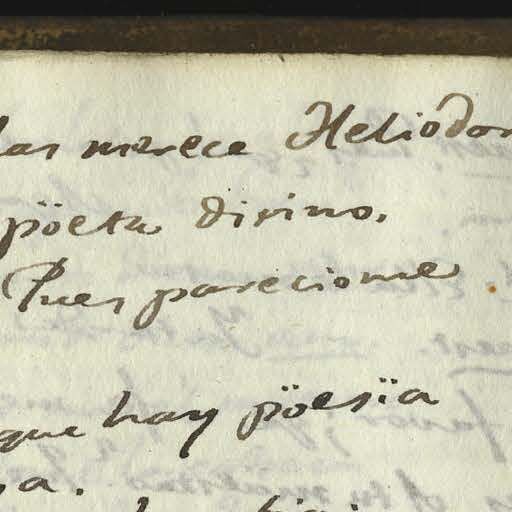 las merece Heliodor
pöeta divino.
Pues pareciome
que hay pöesïa
a.